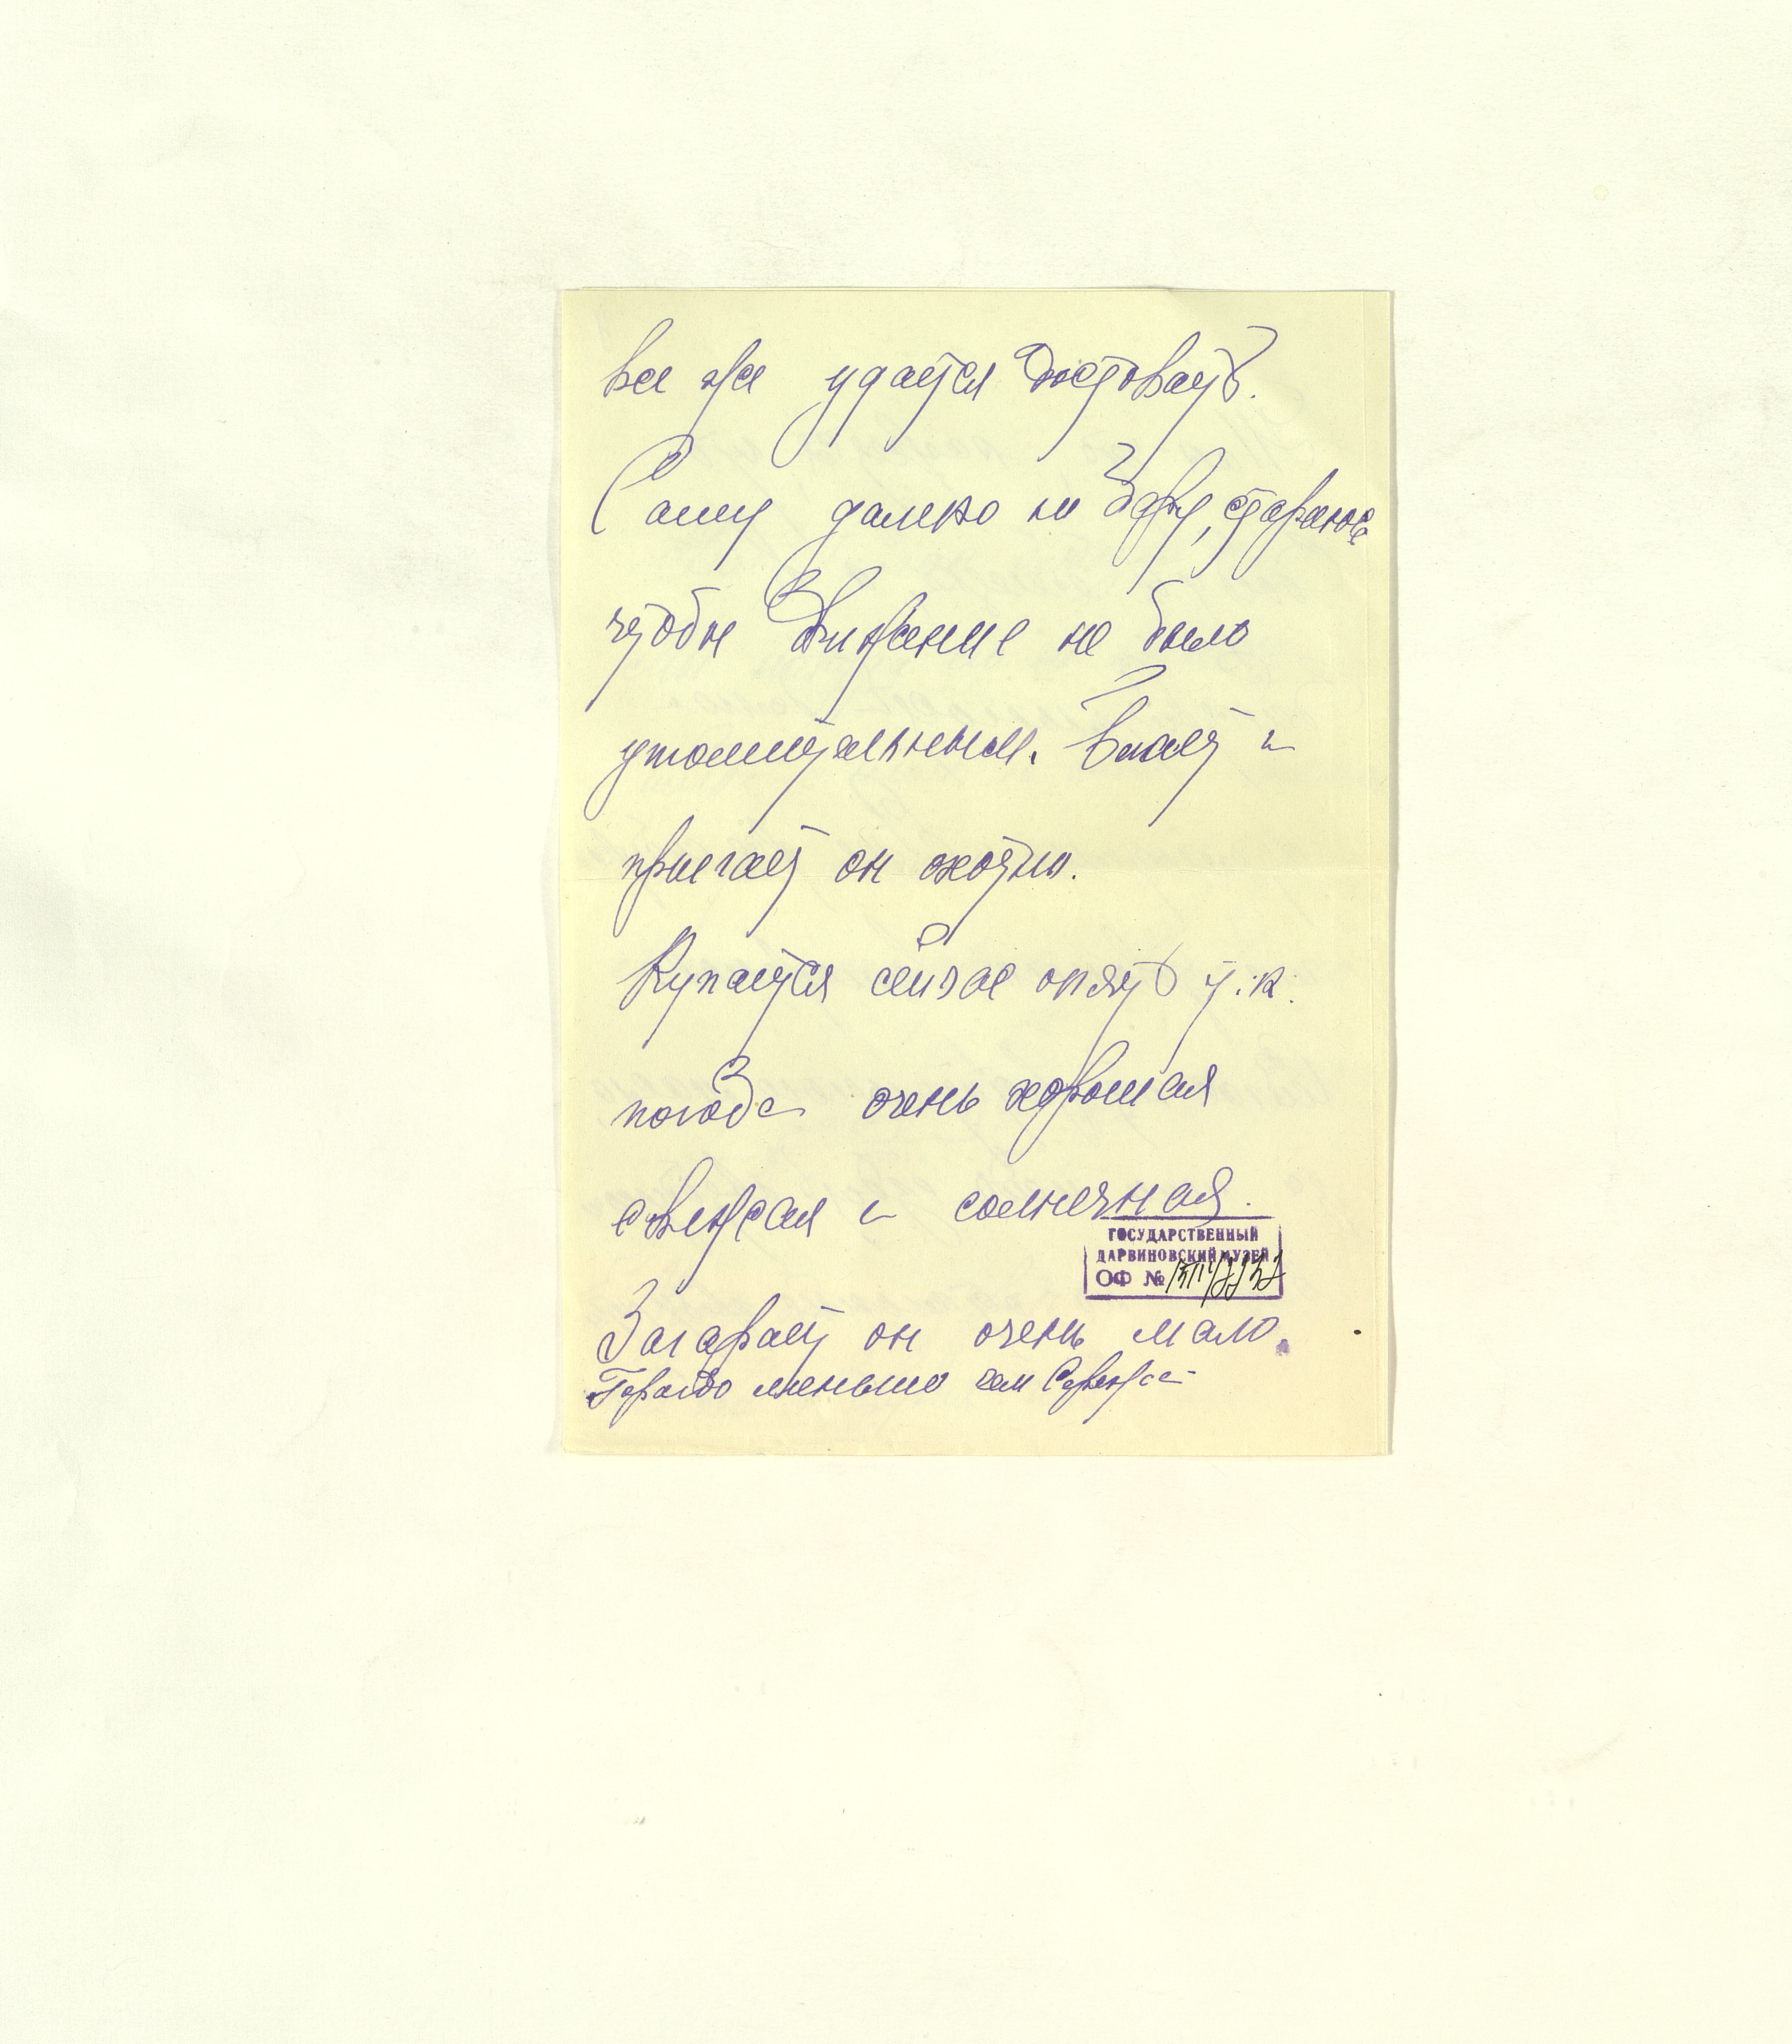 все же удаётся доставать.
Сашу далеко не вожу, стараюсь
чтобы движение не было
утомительным. Бегает и
прыгает он охотно.
Купается сейчас опять т.к.
погода очень хорошая
свежая и солнечная.
ГОСУДАРСТВЕННЫЙ
ДАРВИНОВСКИЙ МУЗЕЙ
ОФ №
Загорает он очень мало.
Гораздо меньше чем Сережа